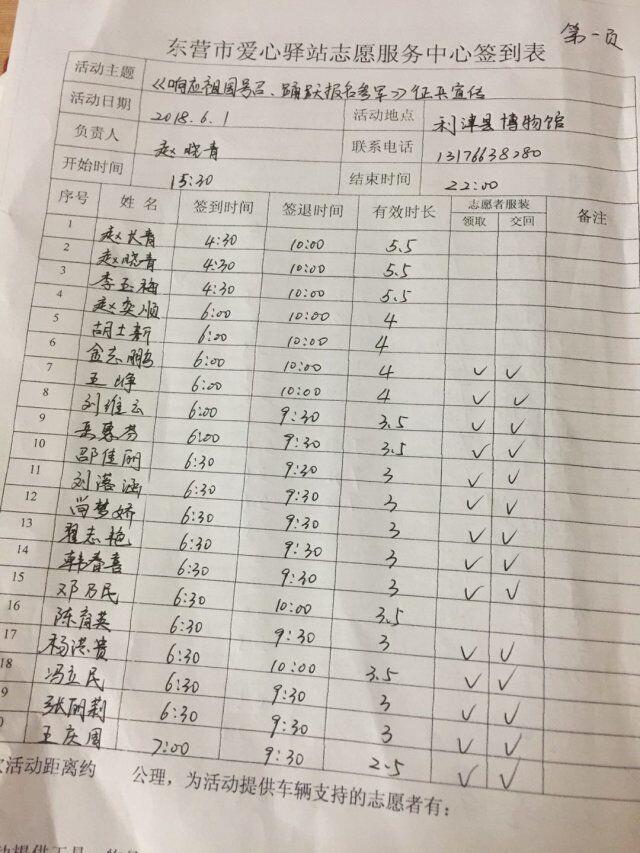 第一页
东营市爱心驿站志愿服务中心签到表
活动主题 《响应祖国号召、踊跃报名参军》征兵宣传
活动日期 2018.6.1 活动地点 利津县博物馆
负责人 赵晓青 联系电话 13176638280
开始时间 15:30 结束时间 22:00
序号 姓名 签到时间 签退时间 有效时长 志愿者服装 备注
领取 交回
1 赵长青 4:30 10:00 5.5
2 赵晓青 4:30 10:00 5.5
3 李玉梅 4:30 10:00 5.5
4 赵奕顺 6:00 10:00 4
5 胡士新 6:00 10:00 4
6 金志鹏 6:00 10:00 4 ✓ ✓
7 王峥 6:00 10:00 4 ✓ ✓
8 刘维云 6:00 9:30 3.5 ✓ ✓
9 惠芬 6:00 9:30 3.5 ✓ ✓
10 邵佳丽 6:30 9:30 3 ✓ ✓
11 刘涵 6:30 9:30 3 ✓ ✓
12 尚梦娇 6:30 9:30 3 ✓ ✓
13 翟志艳 6:30 9:30 3 ✓ ✓
14 韩春喜 6:30 9:30 3 ✓ ✓
15 邓乃民 6:30 10:00 3.5
16 陈育英 6:30 9:30 3 ✓ ✓
17 杨洪贵 6:30 10:00 3.5 ✓ ✓
18 冯立民 6:30 9:30 3 ✓ ✓
9 张丽莉 6:30 9:30 3 ✓ ✓
0 王庆国 7:00 9:30 2.5 ✓ ✓
次活动距离约 公理，为活动提供车辆支持的志愿者有：